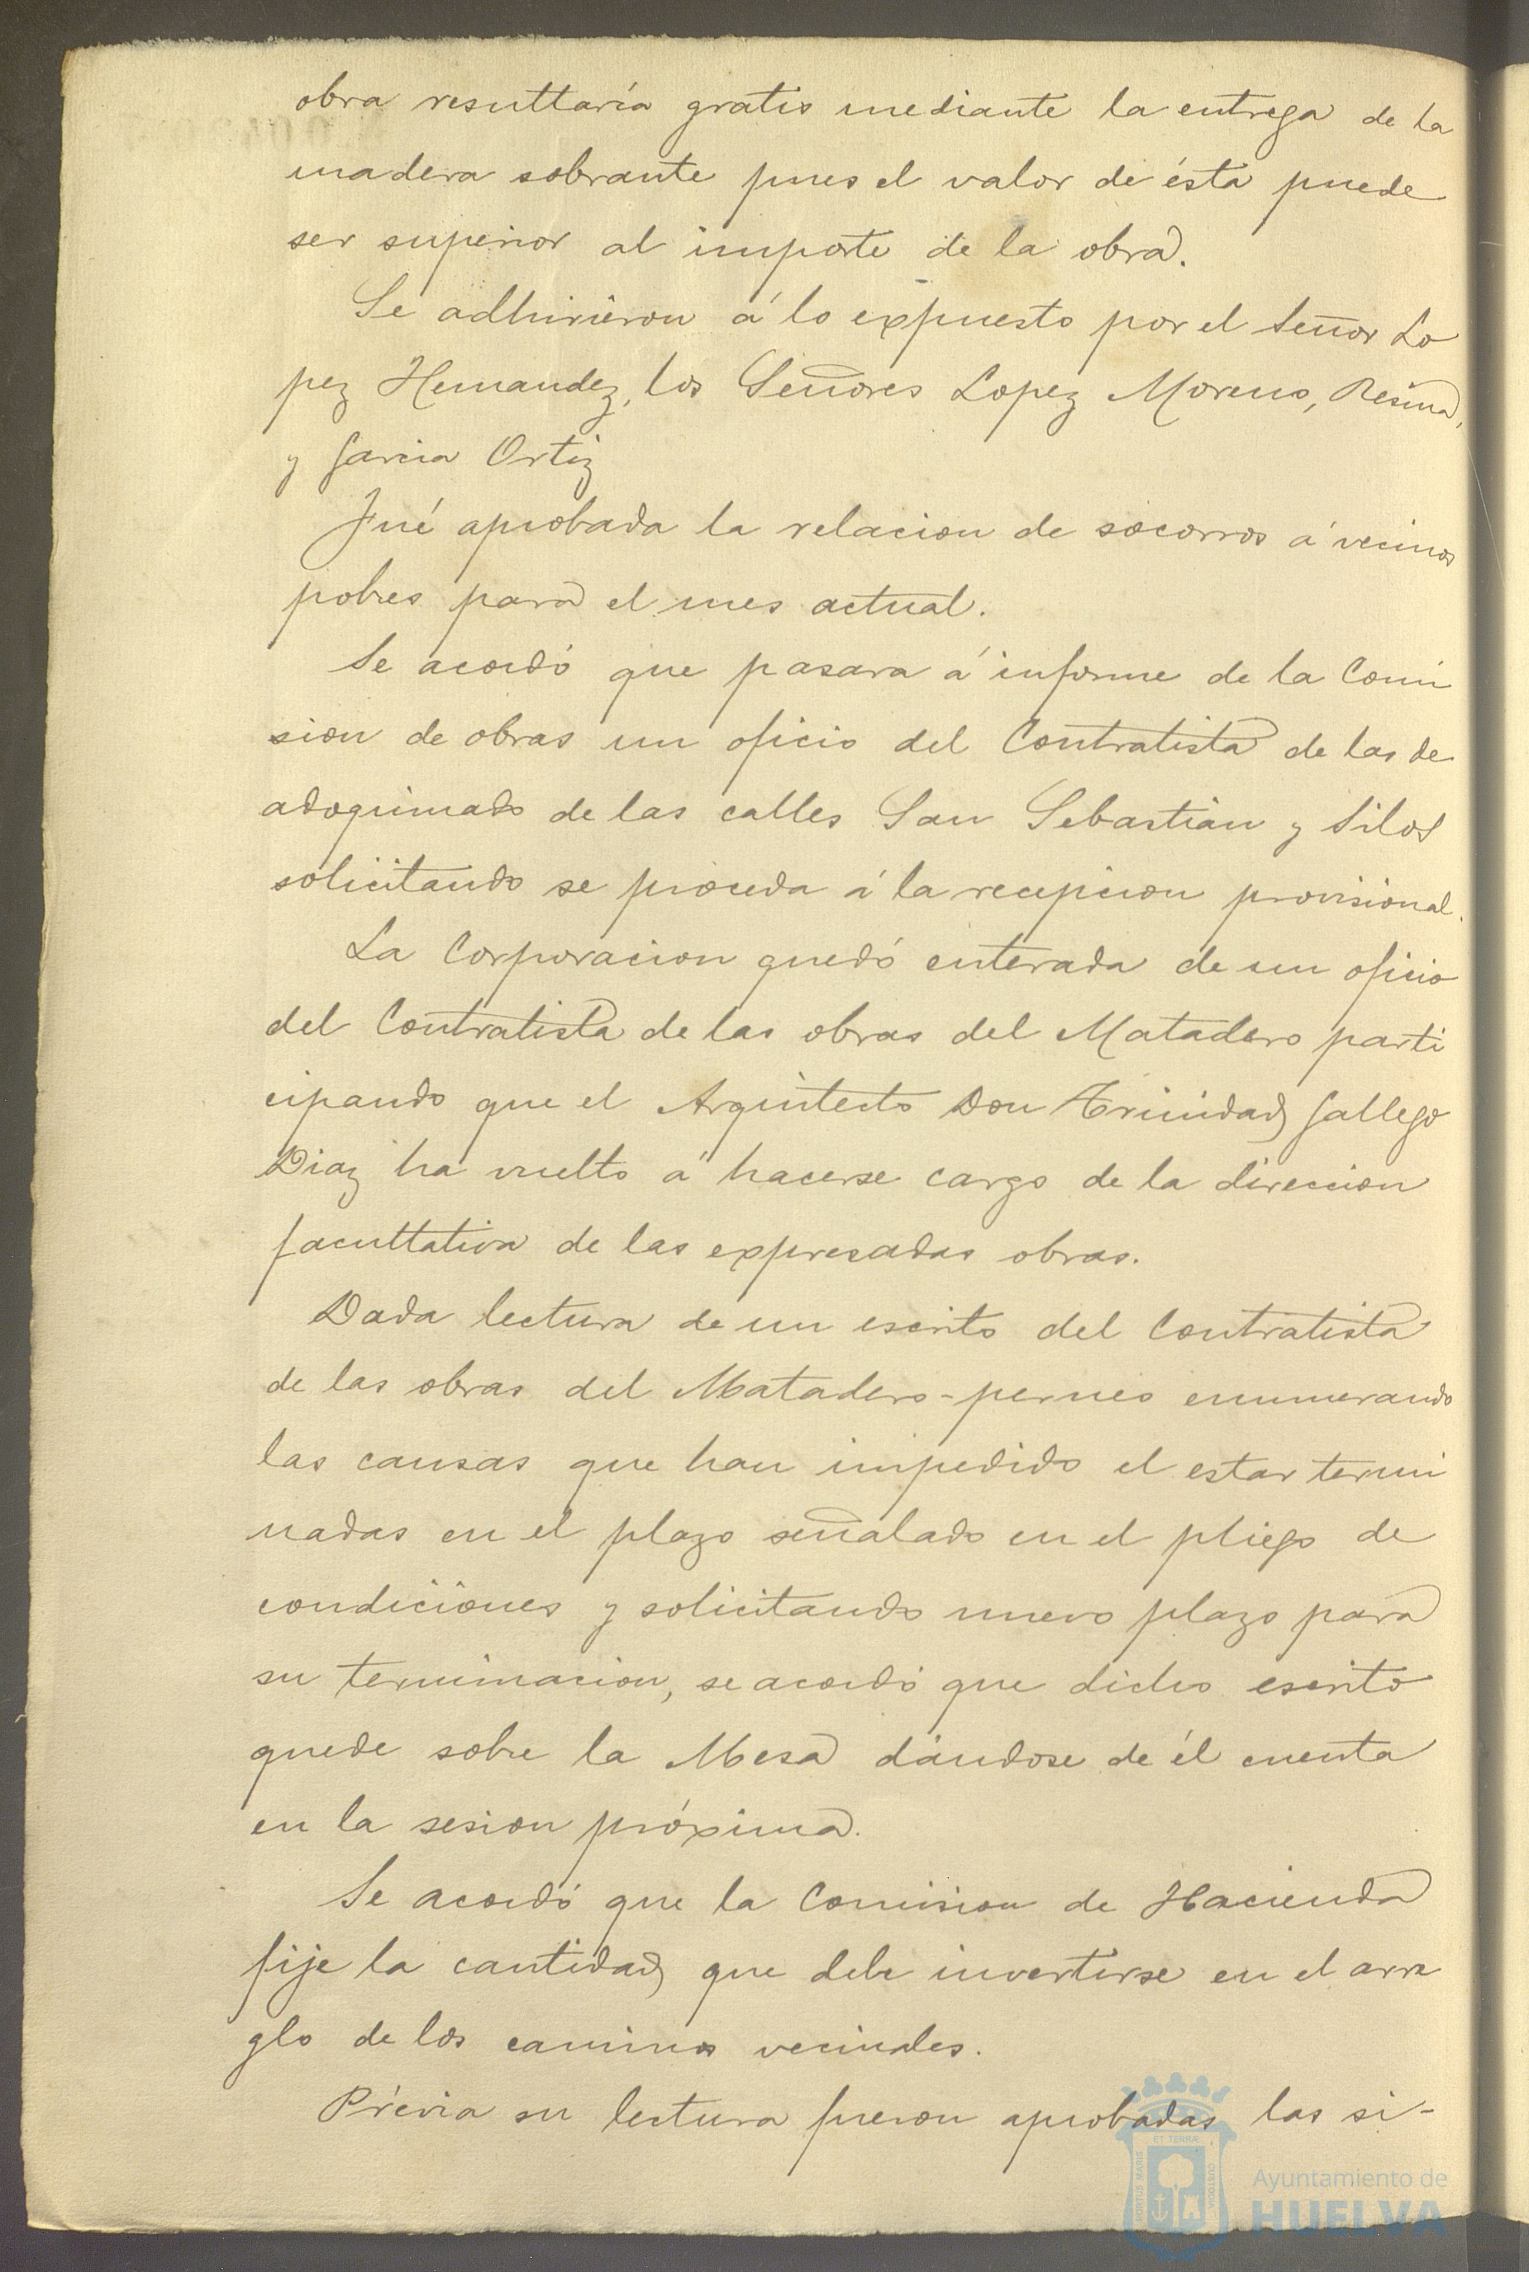 obra resulttaría gratis mediante la entrega de la
madera sobrante pues el valor de ésta puede
ser superior al importe de la obra.
Se adhirieron á lo expuesto por el Señor Lo
pez Hernandez, los Señores Lopez Moreno, Resina,
y Garcia Ortiz
Fué aprobada la relacion de socorros á vecinos
pobres para el mes actual.
Se acordó que pasara á informe de la Comi
sion de obras un oficio del Contratista de las de
adoquinado de las calles San Sebastián y Silos
solicitando se proceda á la recepcion provisional.
La Corporacion quedó enterada de un oficio
del Contratista de las obras del Matadero parti
cipando que el Arquitecto Don Trinidad Gallego
Diaz ha vuelto á hacerse cargo de la direccion
facultativa de las expresadas obras.
Dada lectura de un escrito del Contratista
de las obras del Matadero-perneo enumerando
las causas que han impedido el estar termi
nadas en el plazo señalado en el pliego de
condiciones y solicitando nuevo plazo para
su terminacion, se acordó que dicho escrito
quede sobre la Mesa dándose de él cuenta
en la sesion próxima.
Se acordó que la Comision de Hacienda
fije la cantidad que debe invertirse en el arre
glo de los caminos vecinales.
Prévia su lectura fueron aprobadas las si-
PORTUS MARIS
ET TERRÆ
CUSTODIA
Ayuntamiento de
HUELVA